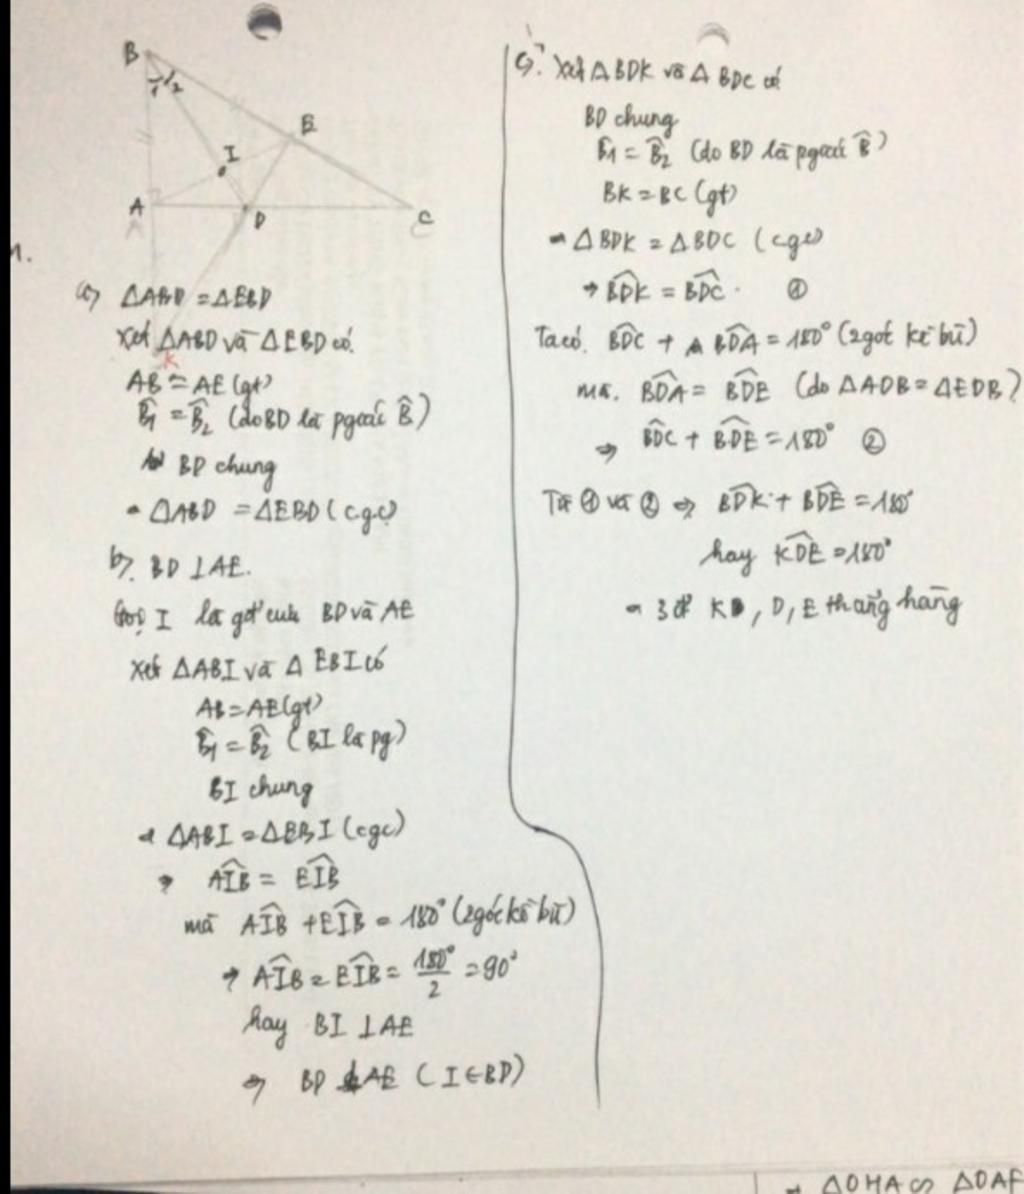 B
1 2
E
I
A
D
C
1.
a, △ABD = △EBD
Xét △ABD và △EBD có.
K
AB = AE (gt)
B̂1 = B̂2 (do BD là pgcủa B̂)
BD chung
△ABD = △EBD (c.g.c)
b, BD ⊥ AE.
Gọi I là gđ của BD và AE
Xét △ABI và △EBI có
AB = AE (gt)
B̂1 = B̂2 (BI là pg)
BI chung
→ △ABI = △EBI (cgc)
→ AÎB = EÎB
mà AÎB + EÎB = 180° (2góc kề bù)
→ AÎB = EÎB = 180°/2 = 90°
hay BI ⊥ AE
⇒ BD ⊥ AE (I ∈ BD)
c, Xét △BDK và △BDC có
BD chung
B̂1 = B̂2 (do BD là pgcủa B̂)
BK = BC (gt)
→ △BDK = △BDC (cgc)
→ BD̂K = BD̂C. ①
Ta có. BD̂C + BD̂A = 180° (2góc kề bù)
mà. BD̂A = BD̂E (do △ADB = △EDB)
⇒ BD̂C + BD̂E = 180° ②
Từ ① và ② ⇒ BD̂K + BD̂E = 180°
hay KD̂E = 180°
→ 3 đ' K, D, E thẳng hàng
→ △OHA ∽ △OAF